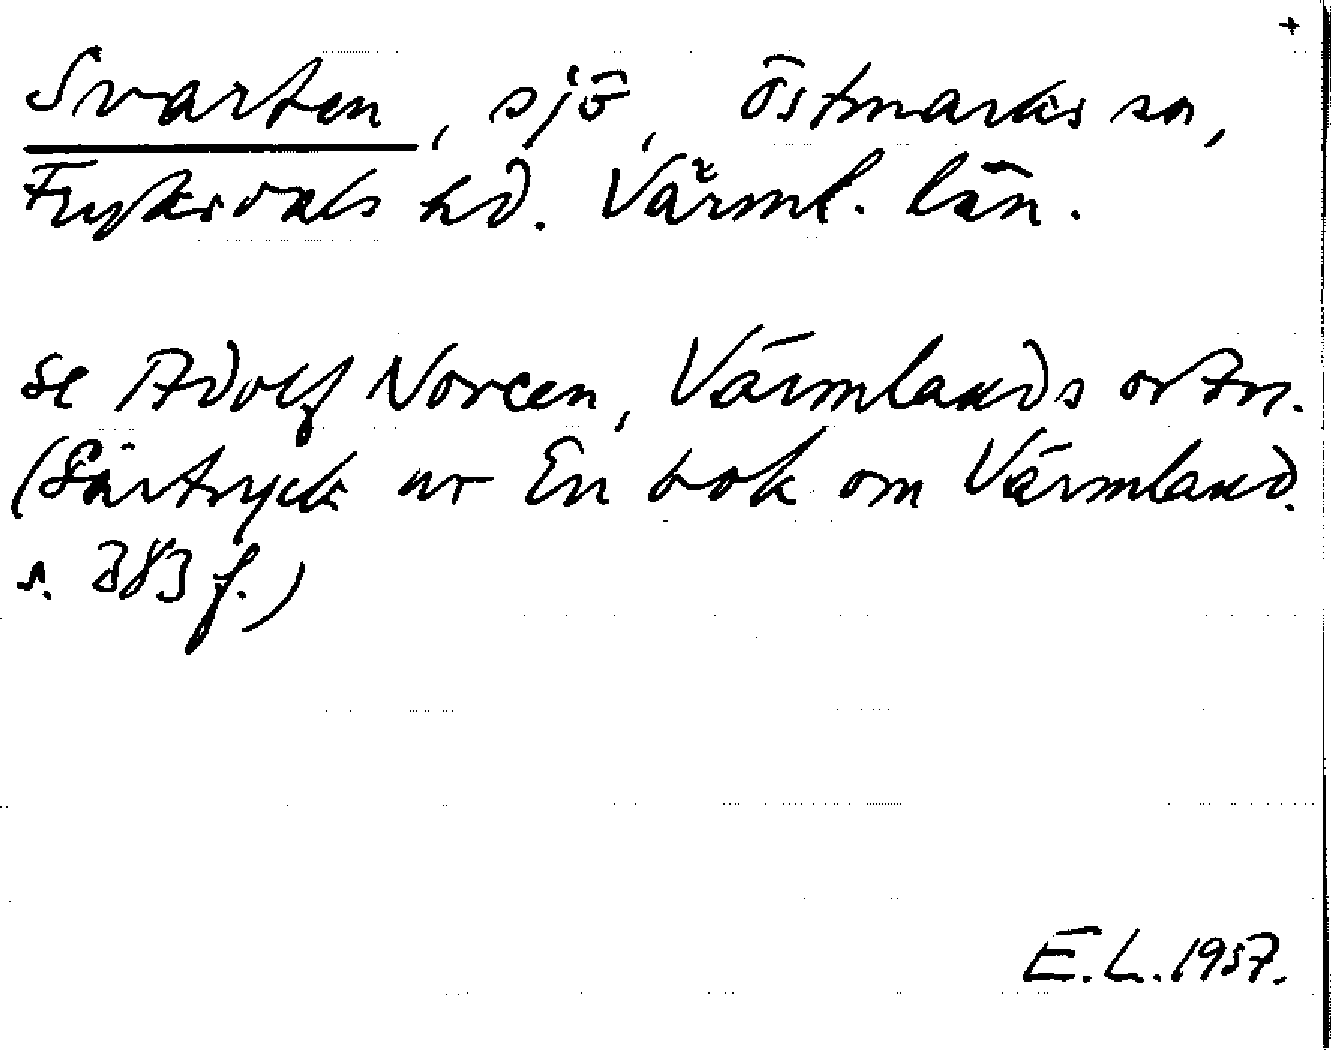 +
Svarten, sjö, Östmarks sn,
Fryksdals hd. Värml. län.
se Adolf Noreen, Värmlands ortn.
(Särtryck ur En bok om Värmland.
s. 383 f.)
E.L. 1957.